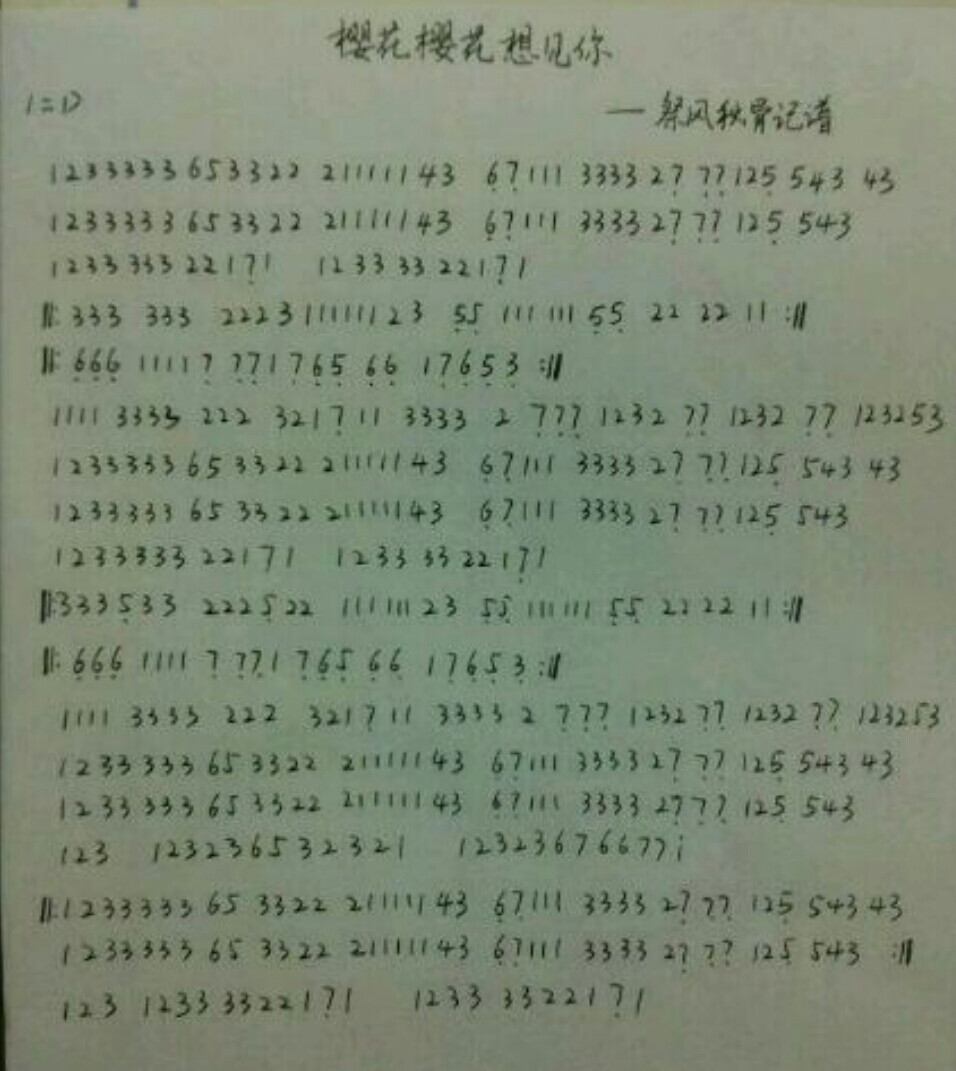 樱花樱花想见你
1=D
—祭风秋霄记谱
1233333 653322 21111143 67111 3333 27 77125 543 43
1233333 65 3322 21111143 67111 3333 277 77 125 543
1233 333 22171 1233 33 22171
‖: 333 333 2223 11111123 55 111 111 55 22 22 11 :‖
‖: 666 11117 771765 66 17653 :‖
1111 3333 222 3217 11 3333 2 777 1232 77 1232 77 123253
1233333 65 3322 21111143 67111 3333 27 77125 543 43
1233333 65 3322 21111143 67111 3333 27 77125 543
1233333 22171 1233 33 22171
‖:333533 222522 111111 23 55 111111 55 2222 11 :‖
‖: 666 1111 7 771 765 66 17653 :‖
1111 3333 222 3217 11 3333 2 777 1232 77 1232 77 123253
1233333 65 3322 21111143 67111 3333 27 77 125 543 43
1233333 653322 21111143 67111 3333 2777 125 543
123 123236532321 123236766771̇
‖:1233333 65 3322 21111143 67111 3333 27 77 125 543 43
1233333 65 3322 21111143 67111 3333 27 77 125 543 :‖
123 1233 3322171 1233 3322171